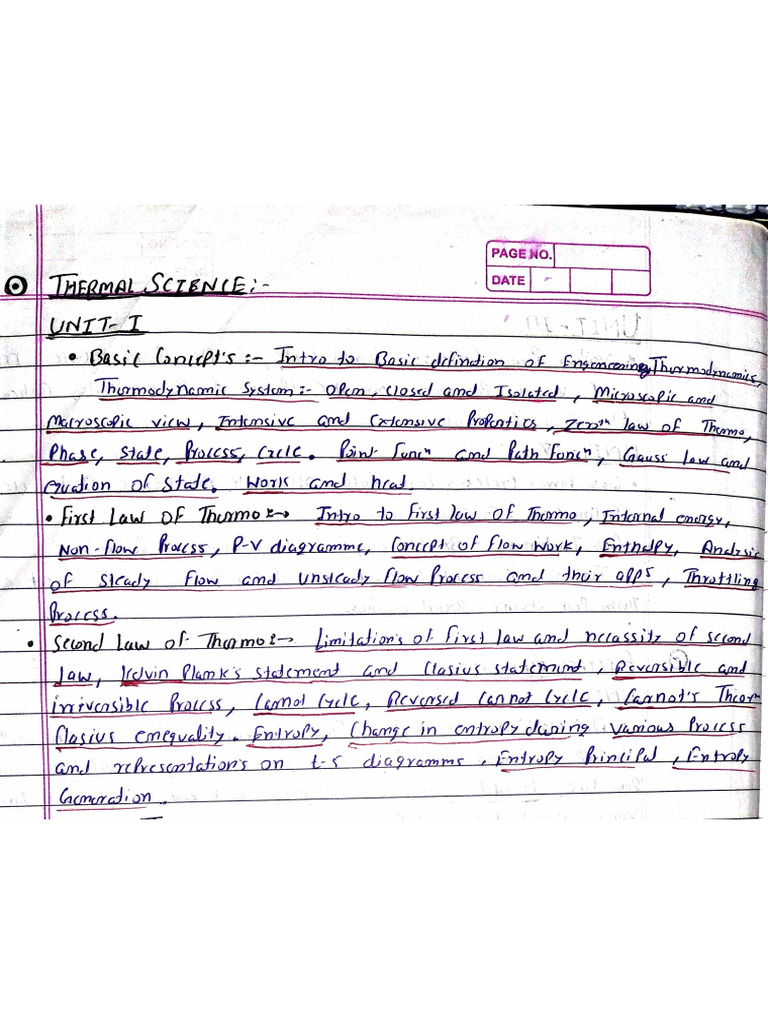 PAGE NO.
DATE
THERMAL SCIENCE:-
UNIT-I
• Basic Concept's :- Intro to Basic defination of Engeneering Thermodynamics,
Thermodynamic System:- open, closed and Isolated, Microscopic and
Macroscopic view, Intensive and Extensive Properties, Zeroth law of Thermo,
Phase, State, Process, Cycle. Point Funcn and Path Funcn, Gauss law and
equation of State. Work and heat.
• First Law of Thermo:→ Intro to First law of Thermo, Internal energy,
Non-flow Process, P-V diagramme, Concept of flow Work, Enthalpy, Analysis
of steady flow and unsteady flow Process and their apps, Throttling
Process.
• Second Law of Thermo:→ Limitation's of First law and necassity of second
law, Kelvin Plank's statement and Clasius statement, Reversible and
irriversible Process, Carnot Cycle, Reversed Carnot Cycle, Carnot's Theorm
Clasius emequality. Entropy, Change in entropy during various Process
and representation's on t-s diagramms, Entropy Principal, Entropy
Generation.